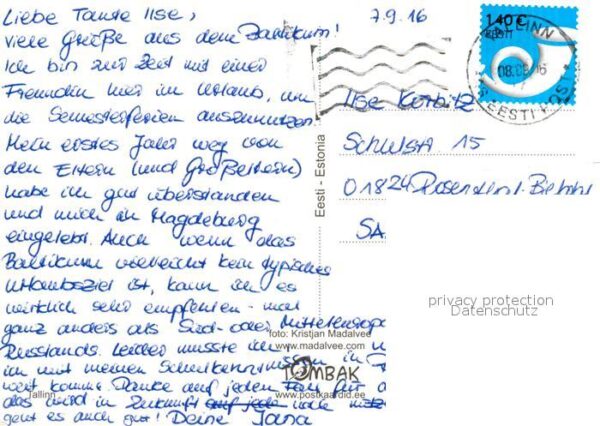 Liebe Tante Ilse,
7.9.16
viele Grüße aus dem Baltikum!
Ich bin zur Zeit mit einer
Freundin hier im Urlaub, um
die Semesterferien auszunutzen.
Mein erstes Jahr weg von
den Eltern (und Großeltern)
habe ich gut überstanden
und mich in Magdeburg
eingelebt. Auch wenn das
Baltikum vielleicht kein typisches
Urlaubsziel ist, kann ich es
wirklich sehr empfehlen - mal
ganz anders als Süd- oder Mitteleuropa
Russlands. Leider musste ich
ich mit meinen Schulkenntnissen in
weit kommt. Danke auf jeden Fall für
das wird in Zukunft auf jede
geht es auch gut! Deine Jana
1.40 €
EESTI
TALLINN
08.09.16
EESTI POST
Ilse
Schulstr 15
01824 Rosenthal-Bielatal
SA
Eesti - Estonia
privacy protection
Datenschutz
foto: Kristjan Madalvee
www.madalvee.com
TOMBAK
www.postkaardid.ee
Tallinn